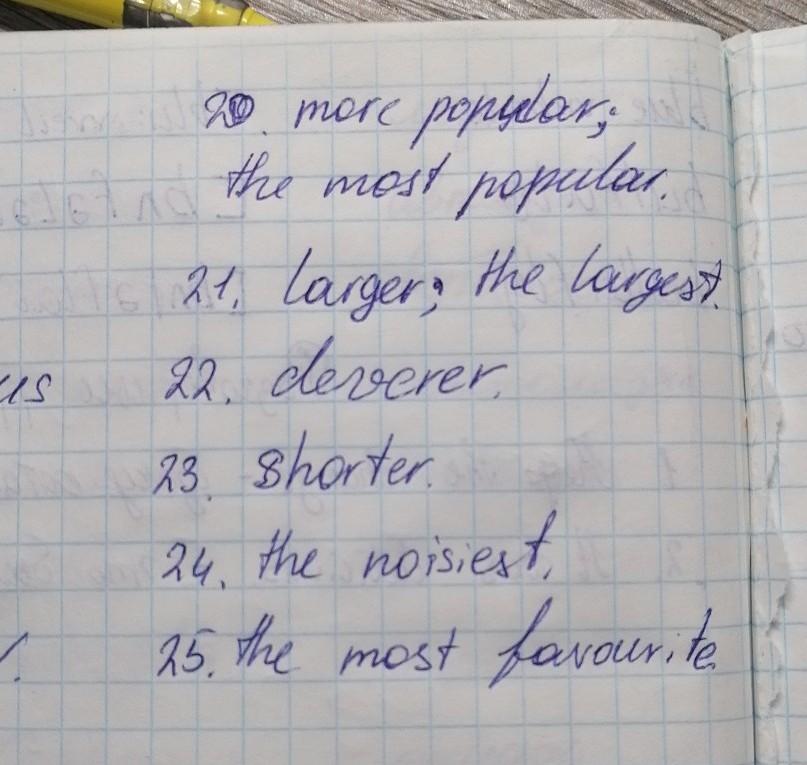 20. more popular;
the most popular.
21. larger; the largest.
us 22. cleverer.
23. shorter.
24. the noisiest.
25. the most favourite.